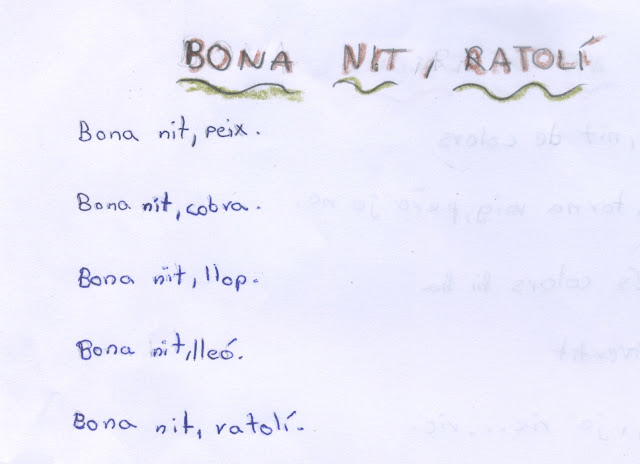 BONA NIT, RATOLÍ
Bona nit, peix.
Bona nit, cobra.
Bona nit, llop.
Bona nit, lleó.
Bona nit, ratolí.